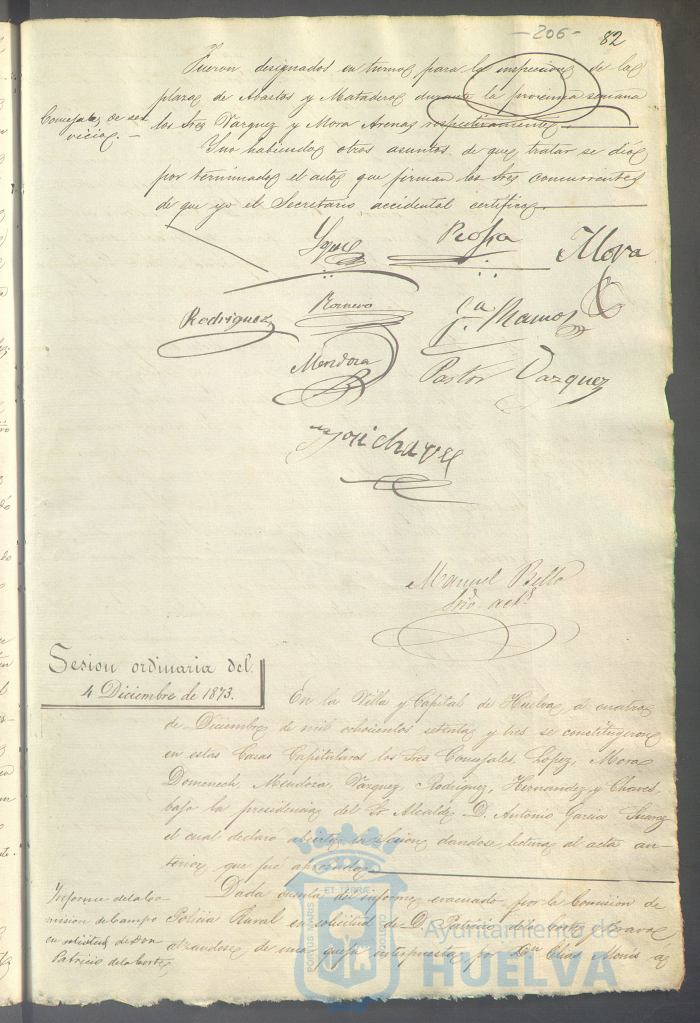 -206-
82
Fueron designados en turnos para la inspeccion de las
plazas de Abastos y Mataderos durante la procsima semana
Concejales de ser
vicios. -
los Sres Vazquez y Mora Arenas respectivamente.
Y no habiendo otros asuntos de que tratar se dió
por terminado el acto que firman los Sres concurrentes
de que yo el Secretario accidental certifico.
Rossa
Mora
Rodriguez
Romero
Ramos
Mendoza
Pastor
Vazquez
José Chavez
Manuel Bello
Srio acctl
Sesion ordinaria del
4 Diciembre de 1873.
En la Villa y Capital de Huelva a cuatro
de Diciembre de mil ochocientos setenta y tres se constituyeron
en estas Casas Capitulares los Sres Concejales Lopez, Mora
Domenech, Mendoza, Vazquez, Rodriguez, Hernandez y Chaves,
bajo la presidencia del Sr Alcalde D. Antonio Garcia Suarez
el cual declaró abierta la sesion dandose lectura al acta an-
terior que fué aprobada.
Informe de la Co
mision de Campo
en solicitud de Don
Patricio de la Corte
Dada cuenta del informe evacuado por la Comision de
Policia Rural en solicitud de D. Patricio de la Corte y Bravo,
alzandose de una queja interpuesta por Don Elias Monis a
PORTUS MARIS
ET TERRÆ
CUSTODIA
Ayuntamiento de
HUELVA